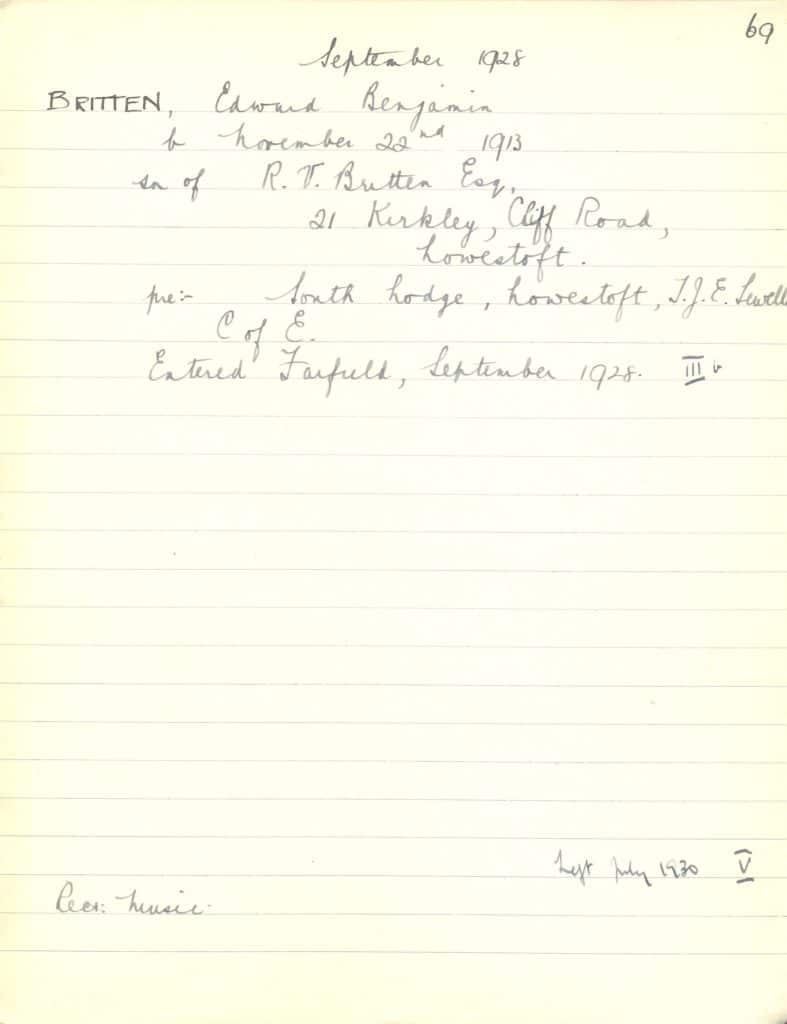 69
September 1928
BRITTEN, Edward Benjamin
b November 22nd 1913
sn of R. V. Britten Esq,
21 Kirkley, Cliff Road,
Lowestoft.
pre:- South Lodge, Lowestoft, T.J.E. Sewell
C of E.
Entered Farfield, September 1928. III b
Left July 1930 V
Recr: Music.